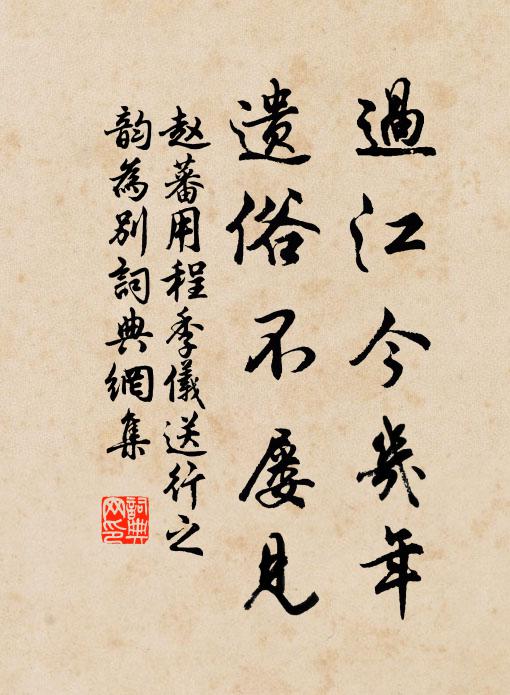 過江今幾年
遗俗不屡見
赵蕃用程季儀送行之
韵為别詞典網集
詞典網印